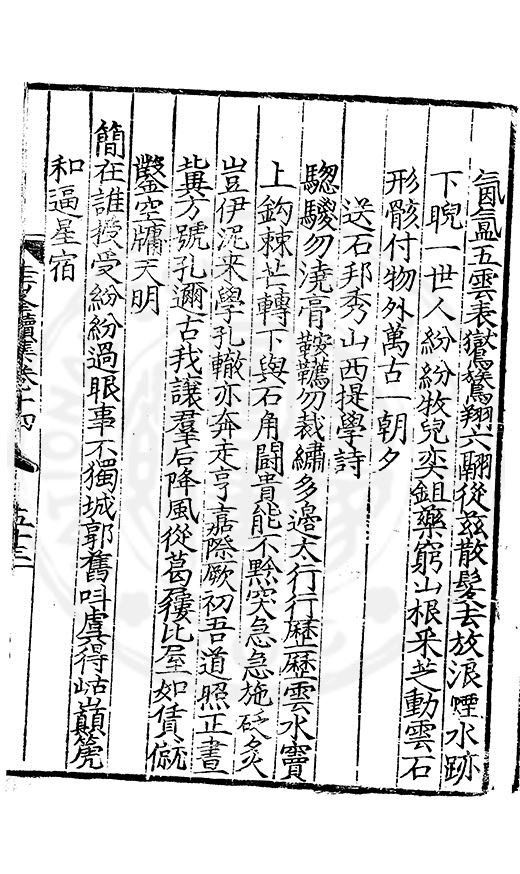 氤氳五雲表嶽鸑鷟翔六翮從茲散髮去放浪煙水跡
下睨一世人紛紛牧兒奕鉏藥窮山根采芝動雲石
形骸付物外萬古一朝夕
送石邦秀山西提學詩
騘騣勿澆膏鞍韉勿裁繡多邊太行行歷歷雲水竇
上鈎棘芒轉下與石角鬪貴能不黔突急急施砭灸
豈伊泥来學孔轍亦奔走亨嘉際厥初吾道照正晝
冀方號孔邇古我讓羣后降風從葛藟比屋如賃僦
鑿空牖天明
簡在誰授受紛紛過眼事不獨城郭舊叫虞得岵巔篪
和逼星宿
續集卷十四 五十三